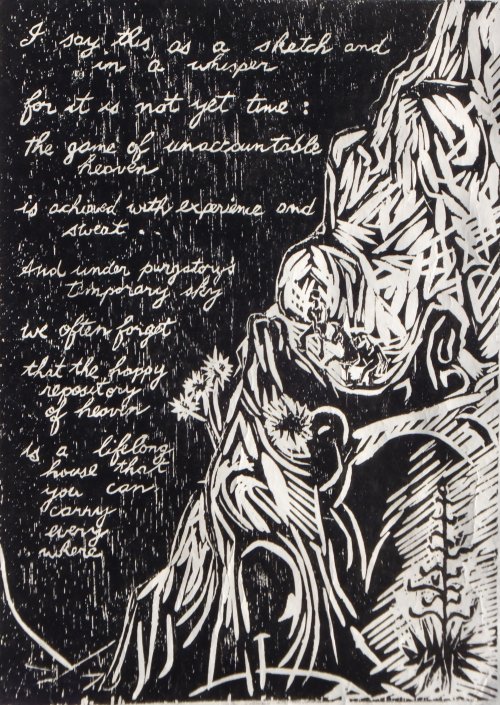 I say this as a sketch and
in a whisper
for it is not yet time:
the game of unaccountable
heaven
is achieved with experience and
sweat.
And under purgatory's
temporary sky
we often forget
that the happy
repository
of heaven
is a lifelong
house that
you can
carry
every
where